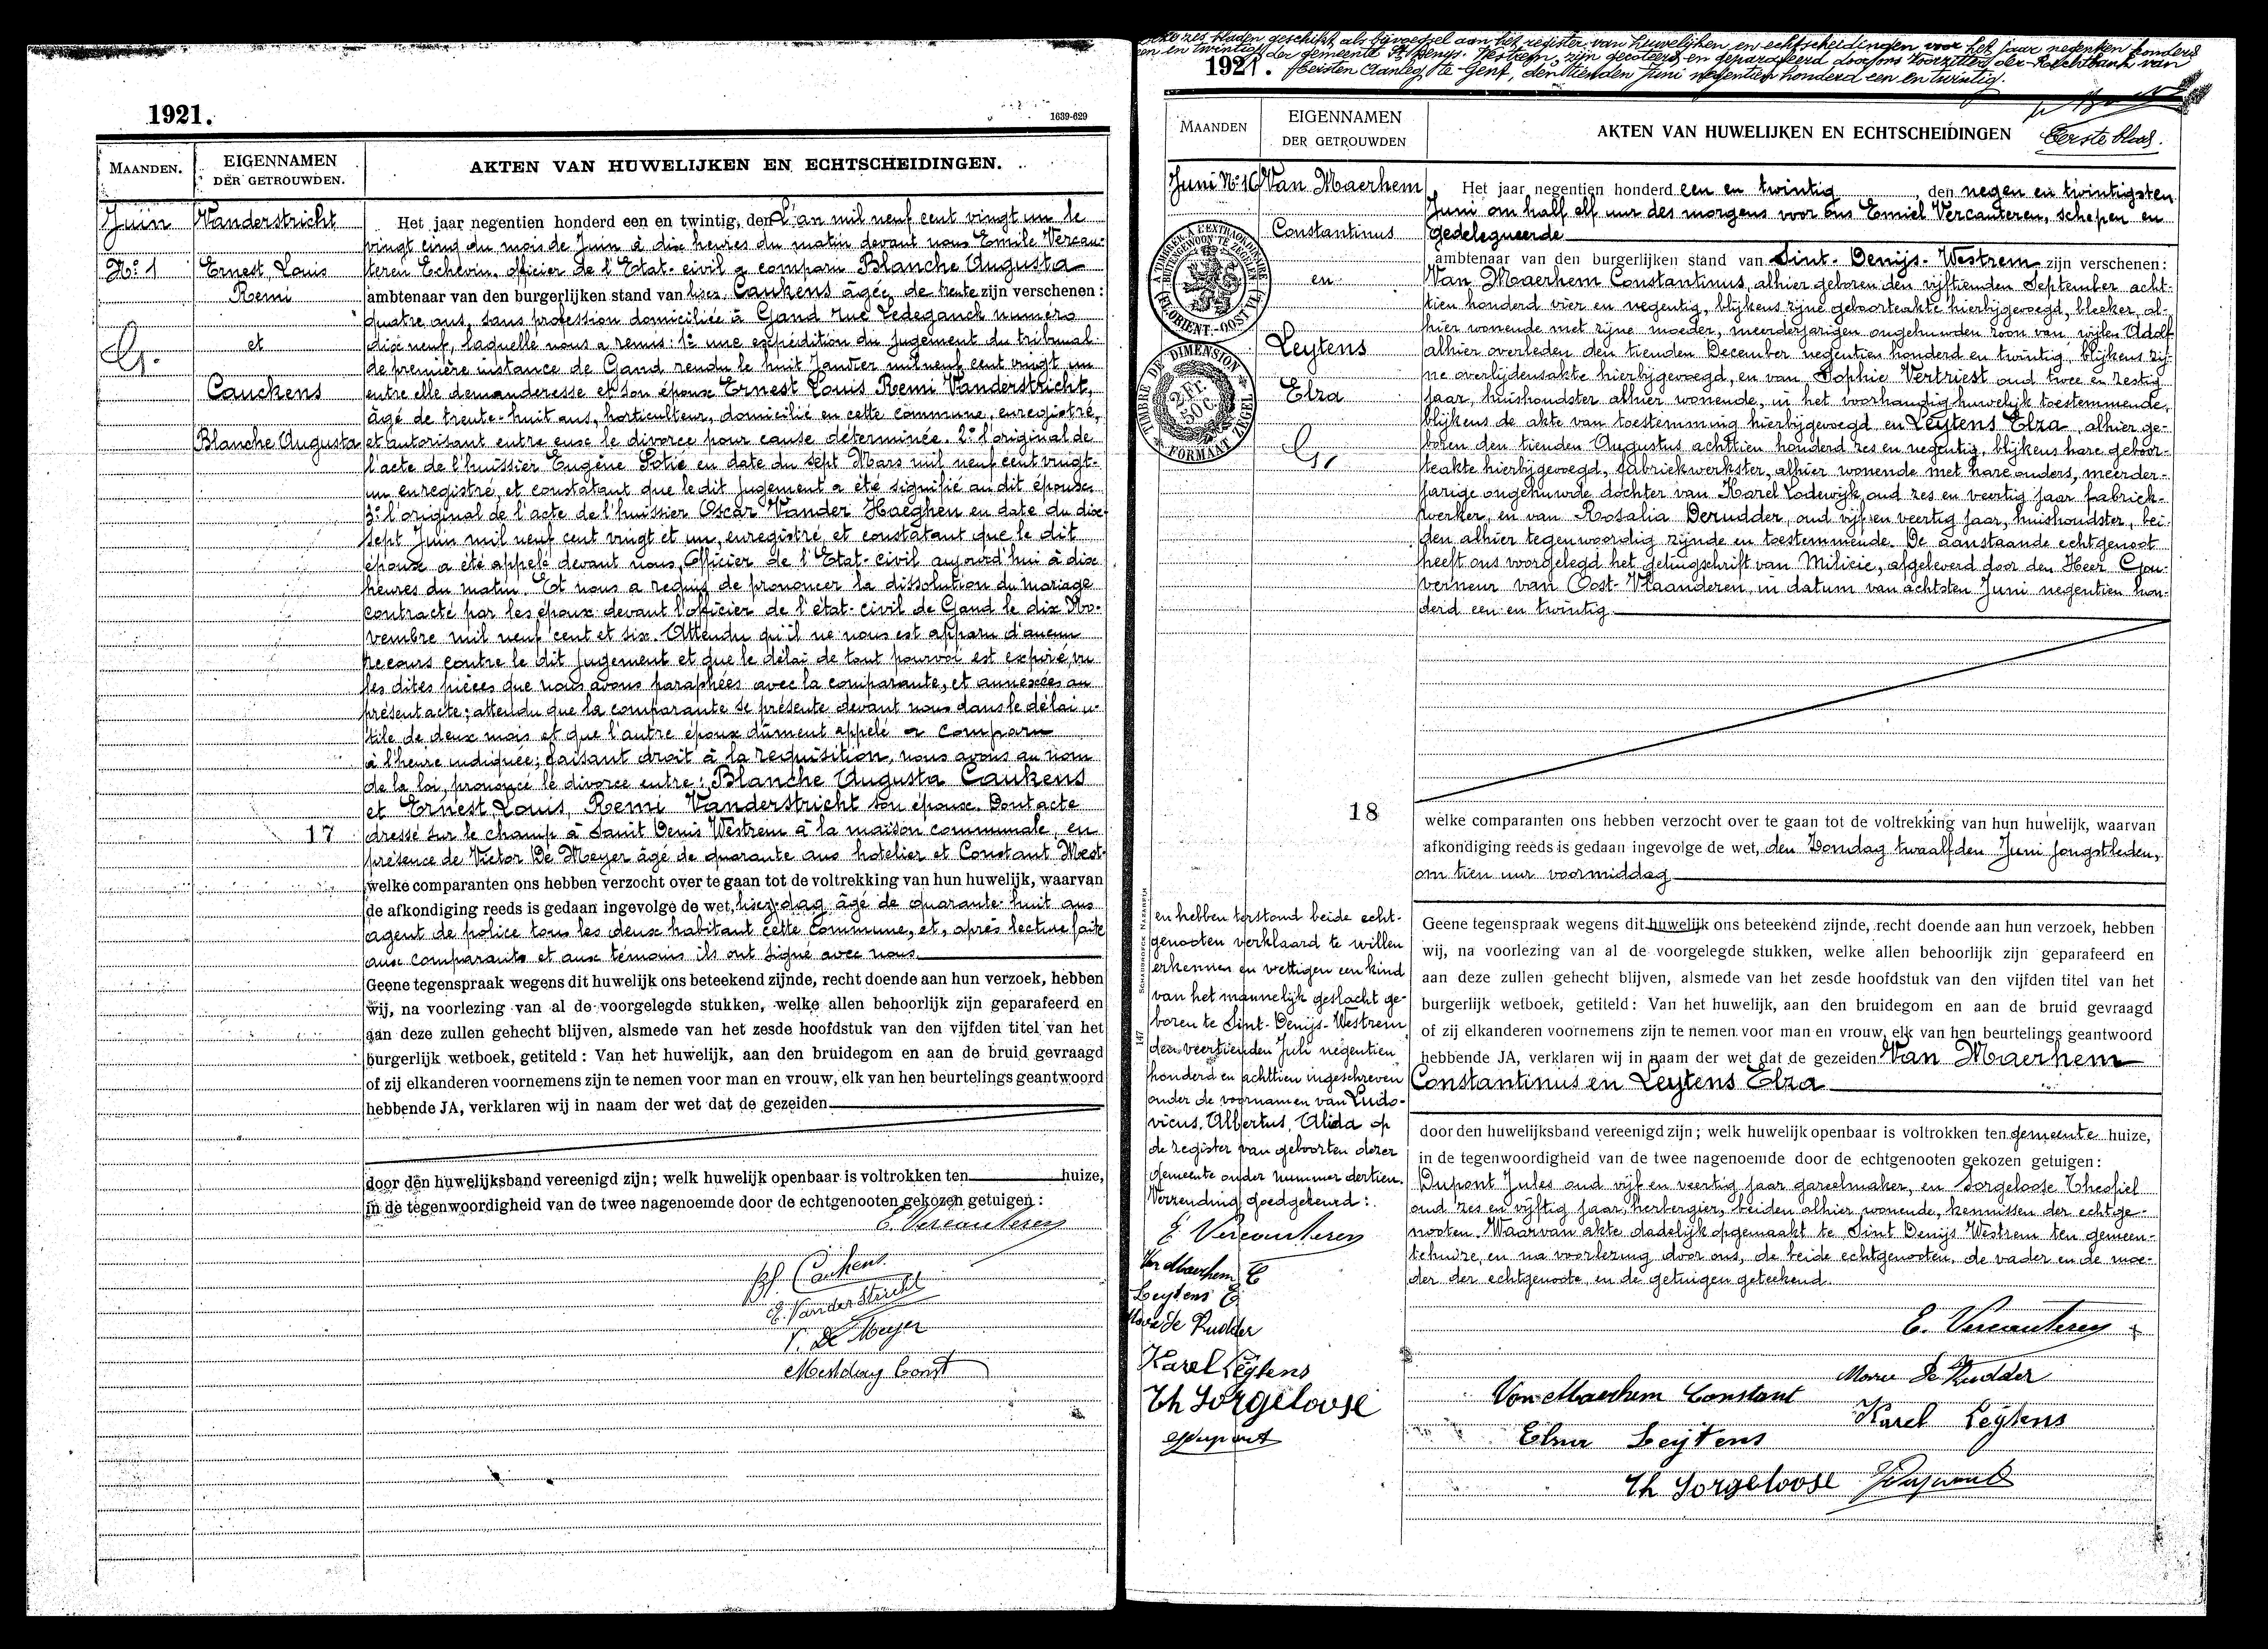 1921.
1639-629
MAANDEN.
EIGENNAMEN
DER GETROUWDEN.
AKTEN VAN HUWELIJKEN EN ECHTSCHEIDINGEN.
Juin
N° 1
G.
Vanderstricht
Ernest Louis
Remi
et
Cauckens
Blanche Augusta
17
Het jaar negentien honderd een en twintig, den L'an mil neuf cent vingt un le
vingt cinq du mois de Juin à dix heures du matin devant nous Emile Vercau-
teren Echevin, officier de l'Etat-civil a comparu Blanche Augusta
ambtenaar van den burgerlijken stand van Caukens âgée de trente zijn verschenen :
quatre ans, sans profession domiciliée à Gand rue Ledeganck numéro
dix neuf, laquelle nous a remis : 1° une expédition du Jugement du tribunal
de première instance de Gand rendu le huit Janvier mil neuf cent vingt un
entre elle demanderesse et son époux Ernest Louis Remi Vanderstricht,
âgé de trente-huit ans, horticulteur, domicilié en cette commune, enregistré,
et autorisant entre eux le divorce pour cause déterminée. 2° l'original de
l'acte de l'huissier Eugène Potié en date du sept Mars mil neuf cent vingt-
un enregistré, et constatant que le dit Jugement a été signifié au dit époux.
3° l'original de l'acte de l'huissier Oscar Vander Haeghen en date du dix-
sept Juin mil neuf cent vingt et un, enregistré, et constatant que le dit
époux a été appelé devant nous, Officier de l'Etat-civil aujourd'hui à dix
heures du matin. Et nous a requis de prononcer la dissolution du mariage
contracté par les époux devant l'officier de l'état-civil de Gand le dix No-
vembre mil neuf cent et six. Attendu qu'il ne nous est apparu d'aucun
recours contre le dit Jugement et que le délai de tout pourvoi est expiré, vu
les dites pièces que nous avons paraphées avec la comparante, et annexées au
présent acte ; attendu que la comparante se présente devant nous dans le délai u-
tile de deux mois et que l'autre époux dûment appelé a comparu
à l'heure indiquée ; faisant droit à la requisition, nous avons au nom
de la loi, prononcé le divorce entre : Blanche Augusta Caukens
et Ernest, Louis, Remi Vanderstricht son époux. Dont acte
dressé sur le champ à Saint Denis Westrem à la maison communale, en
présence de Victor De Meyer âgé de quarante ans hotelier et Constant Mest-
welke comparanten ons hebben verzocht over te gaan tot de voltrekking van hun huwelijk, waarvan
de afkondiging reeds is gedaan ingevolge de wet, dag âgé de quarante-huit ans
agent de police tous les deux habitant cette Commune, et, après lecture faite
aux comparants et aux témoins ils ont signé avec nous.
Geene tegenspraak wegens dit huwelijk ons beteekend zijnde, recht doende aan hun verzoek, hebben
wij, na voorlezing van al de voorgelegde stukken, welke allen behoorlijk zijn geparafeerd en
aan deze zullen gehecht blijven, alsmede van het zesde hoofdstuk van den vijfden titel van het
burgerlijk wetboek, getiteld : Van het huwelijk, aan den bruidegom en aan de bruid gevraagd
of zij elkanderen voornemens zijn te nemen voor man en vrouw, elk van hen beurtelings geantwoord
hebbende JA, verklaren wij in naam der wet dat de gezeiden
door den huwelijksband vereenigd zijn ; welk huwelijk openbaar is voltrokken ten huize,
in de tegenwoordigheid van de twee nagenoemde door de echtgenooten gekozen getuigen :
E. Vercauteren
Bl. Caukens
E. Vanderstricht
V. De Meyer
Mestdag Const
zes bladen geschikt als bijvoegsel aan het register van huwelijken en echtscheidingen voor het jaar negentien honderd
een en twintig der gemeente St Denijs Westrem, zijn gecoteerd en geparafeerd door ons Voorzitter der Rechtbank van
1921. Eersten Aanleg te Gent, den tienden Juni negentien honderd een en twintig.
MAANDEN
EIGENNAMEN
DER GETROUWDEN
AKTEN VAN HUWELIJKEN EN ECHTSCHEIDINGEN
Eerste blad.
Juni N° 10
Van Maerhem
Constantinus
en
Leytens
Elza
G.
TIMBRE A L'EXTRAORDINAIRE
BUITENGEWOON TE ZEGELEN
FL. ORIENT.-OOST VL.
TIMBRE DE DIMENSION
2 Fr. 50 C.
FORMAAT ZEGEL
18
Het jaar negentien honderd een en twintig, den negen en twintigsten
Juni om half elf uur des morgens voor ons Emiel Vercauteren, schepen en
gedelegueerde
ambtenaar van den burgerlijken stand van Sint-Denijs-Westrem zijn verschenen :
Van Maerhem Constantinus, alhier geboren den vijftienden September acht-
tien honderd vier en negentig, blijkens zijne geboorteakte hierbijgevoegd, bleeker, al-
hier wonende met zijne moeder, meerderjarigen ongehuwden zoon van wijlen Adolf
alhier overleden den tienden December negentien honderd en twintig, blijkens zij-
ne overlijdensakte hierbijgevoegd, en van Sophie Vertriest oud twee en zestig
jaar, huishoudster alhier wonende, in het voorhandig huwelijk toestemmende,
blijkens de akte van toestemming hierbijgevoegd en Leytens Elza, alhier ge-
boren den tienden Augustus achttien honderd zes en negentig, blijkens hare geboor-
teakte hierbijgevoegd, fabriekwerkster, alhier wonende met hare ouders, meerder-
jarige ongehuwde dochter van Karel Lodewijk, oud zes en veertig jaar fabriek-
werker, en van Rosalia Derudder, oud vijf en veertig jaar, huishoudster, bei-
den alhier tegenwoordig zijnde en toestemmende. De aanstaande echtgenoot
heeft ons voorgelegd het getuigschrift van Milicie, afgeleverd door den Heer Gou-
verneur van Oost-Vlaanderen, in datum van achtsten Juni negentien hon-
derd een en twintig.
welke comparanten ons hebben verzocht over te gaan tot de voltrekking van hun huwelijk, waarvan
afkondiging reeds is gedaan ingevolge de wet, den Zondag twaalfden Juni jongstleden,
om tien uur voormiddag
Geene tegenspraak wegens dit huwelijk ons beteekend zijnde, recht doende aan hun verzoek, hebben
wij, na voorlezing van al de voorgelegde stukken, welke allen behoorlijk zijn geparafeerd en
aan deze zullen gehecht blijven, alsmede van het zesde hoofdstuk van den vijfden titel van het
burgerlijk wetboek, getiteld : Van het huwelijk, aan den bruidegom en aan de bruid gevraagd
of zij elkanderen voornemens zijn te nemen voor man en vrouw, elk van hen beurtelings geantwoord
hebbende JA, verklaren wij in naam der wet dat de gezeiden Van Maerhem
Constantinus en Leytens Elza
door den huwelijksband vereenigd zijn ; welk huwelijk openbaar is voltrokken ten gemeente huize,
in de tegenwoordigheid van de twee nagenoemde door de echtgenooten gekozen getuigen :
Dupont Jules oud vijf en veertig jaar gareelmaker, en Sorgeloose Theofiel
oud zes en vijftig jaar, herbergier, beiden alhier wonende, kennissen der echtge-
nooten. Waarvan akte dadelijk opgemaakt te Sint Denijs Westrem ten gemeen-
tehuize, en na voorlezing door ons, de beide echtgenooten, de vader en de moe-
der der echtgenoote, en de getuigen geteekend.
E. Vercauteren
Van Maerhem Constant
De Rudder
Karel Leytens
Elza Leytens
Th Sorgeloose
JDupont
SCHAUBROECK NAZARETH
147
en hebben terstond beide echt-
genooten verklaard te willen
erkennen en wettigen een kind
van het mannelijk geslacht ge-
boren te Sint-Denijs-Westrem
den veertienden Juli negentien
honderd en achttien ingeschreven
onder de voornamen van Ludo-
vicus, Albertus, Alida op
de register van geboorten dezer
gemeente onder nummer dertien.
Verzending goedgekeurd :
E Vercauteren
Van Maerhem C
Leytens E
De Rudder
Karel Leytens
Th Sorgeloose
JDupont